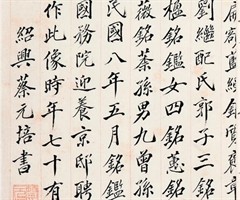 劉繼配氏郭子三銘
楹銘鑑女四銘蕙銘
薇銘荃孫男九曾孫
民國八年五月銘鑑
國務院迎養京邸聘
作此像時年七十有
紹興蔡元培書